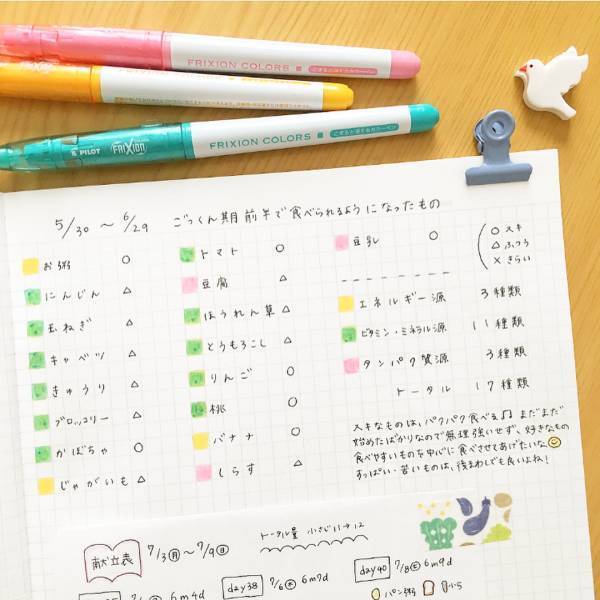 FRIXION COLORS ■ こすると消えるカラーペン
FRIXION COLORS ■ こすると消えるカラーペン
PILOT FRIXION
5/30 〜 6/29 ごっくん期前半で食べられるようになったもの
お粥 ○
にんじん △
玉ねぎ △
キャベツ △
きゅうり △
ブロッコリー △
かぼちゃ ○
じゃがいも △
トマト ○
豆腐 △
ほうれん草 △
とうもろこし △
りんご ○
桃 ○
バナナ ○
しらす △
豆乳 ○
○ スキ
△ ふつう
× きらい
エネルギー源 3種類
ビタミン・ミネラル源 11種類
タンパク質源 3種類
トータル 17種類
スキなものは、パクパク食べる♫ まだまだ
始めたばかりなので無理強いせず、好きなもの
食べやすいものを中心に食べさせてあげたいな
すっぱい・苦いものは、後まわしでも良いよね!
献立表 7/3(月)〜7/9(日)
トータル量 小さじ11→12
6m4d
day38 7/6(木) 6m7d
day40 7/8(土) 6m9d
パン粥